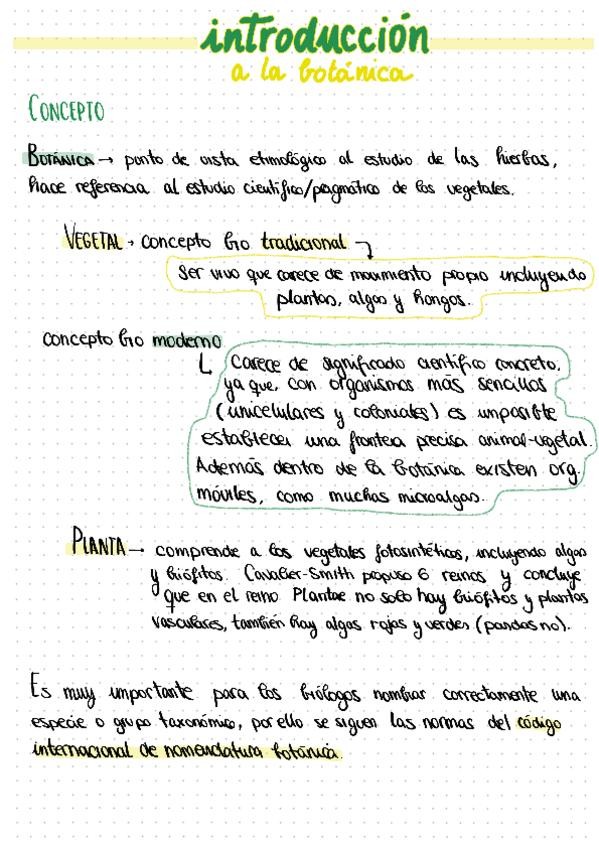 introducción
a la botánica
CONCEPTO
BOTÁNICA → punto de vista etimológico al estudio de las hierbas,
hace referencia al estudio científico/pragmático de los vegetales.
VEGETAL → concepto bio tradicional
Ser vivo que carece de movimiento propio incluyendo
plantas, algas y hongos.
concepto bio moderno
Carece de significado científico concreto.
ya que, con organismos más sencillos
(unicelulares y coloniales) es imposible
establecer una frontera precisa animal-vegetal.
Además dentro de la botánica existen org.
móviles, como muchas microalgas.
PLANTA → comprende a los vegetales fotosintéticos, incluyendo algas
y briófitos. Cavalier-Smith propuso 6 reinos y concluye
que en el reino Plantae no solo hay briófitos y plantas
vasculares, también hay algas rojas y verdes (pardas no).
Es muy importante para los biólogos nombrar correctamente una
especie o grupo taxonómico, por ello se siguen las normas del código
internacional de nomenclatura botánica.